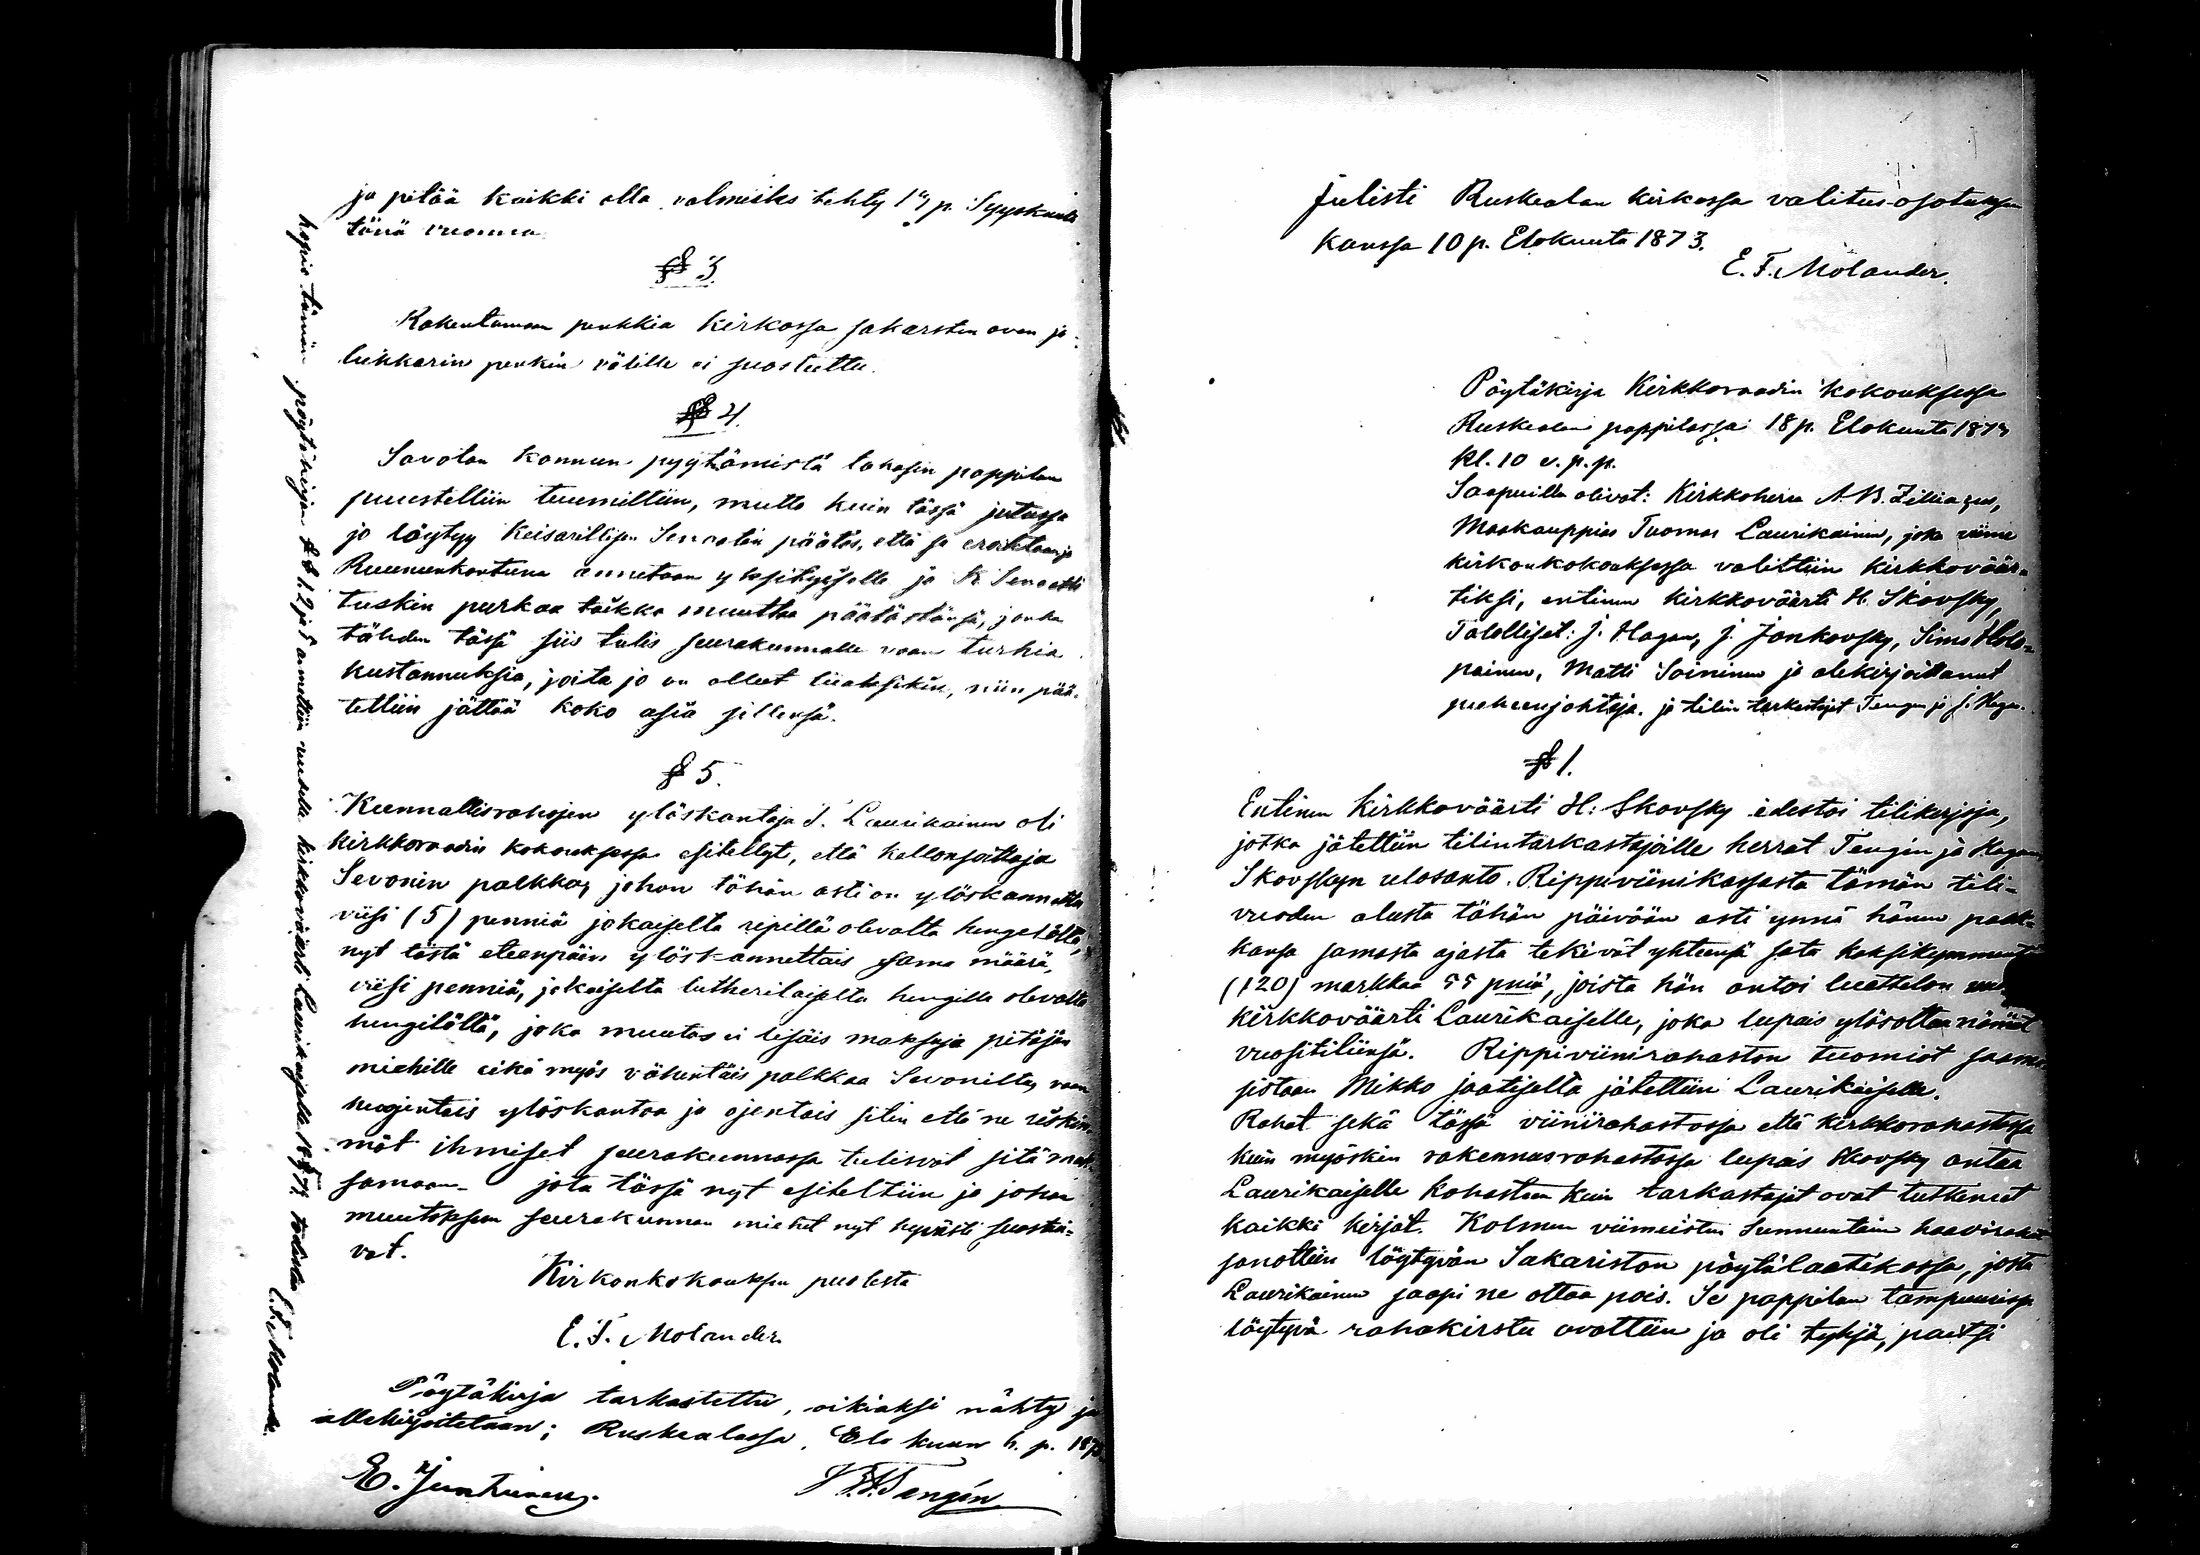 ja pitää kaikki olla valmiiks tehty 1 p. Syyskuuta
tänä vuonna
§ 3.
Rakentamaan penkkia kirkossa sakarsten oven ja
lukkarin penkin välille ei suostuttu.
§ 4.
Savolan konnun pyytämistä takasin pappilan
puustelliin tuumittiin, mutta kuin tässä jutussa
jo löytyy Keisarillisen Senaatin päätös, että se eroitetaan ja
Ruununkontuna annetaan yksityiselle ja K. Senaatti
tuskin purkaa taikka muuttaa päätöstänsä, jonka
tähden tässä siis tulis seurakunnalle vaan turhia
kustannuksia, joita jo on olleet liiaksikin, niin pää-
tettiin jättää koko asia sillensä.
§ 5.
Kunnallisrahojen ylöskantaja T. Laurikainen oli
kirkkoraadin kokouksessa esitellyt, että kellonsoittaja
Sevonin palkka, johon tähän asti on ylöskannettu
viisi (5) penniä jokaiselta ripillä olevalta hengeltä,
nyt tästä eteenpäin ylöskannettais sama määrä,
viisi penniä, jokaiselta lutherilaiselta hengillä olevalta
hengiltä, joka muutos ei lisäis maksoja pitäjän
miehille eikä myös vähentäis palkkaa Sevonilta, vaan
huojentais ylöskantoa ja ojentais siten että ne
ihmiset seurakunnassa tulisivat sitä mak-
samaan jota tässä nyt esiteltiin ja johon
muutoksen seurakunnan miehet nyt hyvästi suostui-
vat.
Kirkonkokouksen puolesta
E. F. Molander
Pöytäkirja tarkastettu, oikiaksi nähty ja
allekirjoitetaan; Ruskealassa, Elo kuun 6. p. 1873
E. Juntunen. Tengén
kopio tämän pöytäkirjan § § 1, 2 ja 5 annettiin uudelle kirkkoväärti Laurikaiselle 18 todistaa E. F. Molander.
Julisti Ruskealan kirkossa valitusosotuksen
kanssa 10 p. Elokuuta 1873.
E. F. Molander.
Pöytäkirja Kirkkoraadin kokouksessa
Ruskealan pappilassa 18 p. Elokuuta 1873
kl. 10 e. p. p.
Saapuilla olivat: Kirkkoherra A. B. Zilliacus,
Maakauppias Tuomas Laurikainen, joka viime
kirkonkokouksessa valittiin kirkkoväär-
tiksi, entinen kirkkoväärti H. Skovsky,
Talolliset: J. Hagan, J. Jankovsky, Simo Holo-
painen, Matti Soininen ja alekirjoittanut
puheenjohtaja. ja tilin tarkastajat Tengen ja J. Hagan.
§ 1.
Entinen kirkkoväärti H. Skovsky edestoi tilikirjoja,
jotka jätettiin tilintarkastajoille herrat Tengin ja Hagan
Skovskyn ulosanto. Rippiviinikassasta tämän tili-
vuoden alusta tähän päivään asti ynnä hänen palk-
kansa samasta ajasta tekivät yhteensä sata kaksikymmentä
(120) markkaa 55 pniä, joista hän antoi luettelon
kirkkoväärti Laurikaiselle, joka lupais ylösottaa nämät
vuositiliinsä. Rippiviinirahaston tuomiot
Mikko jätettiin Laurikaiselle.
Rahat sekä tässä viinirahastossa että kirkkorahastossa
kuin myöskin rakennusrahastossa lupais Skovsky antaa
Laurikaiselle kohastaan kuin tarkastajat ovat tutkineet
kaikki kirjat. Kolmen viimeisten Sunnuntain haavirahat
sanottiin löytyvän Sakariston pöytälaatikossa, josta
Laurikainen saapi ne ottaa pois. Se pappilan tampuurissa
löytyvä rahakirstu avattiin ja oli tyhjä, paitsi